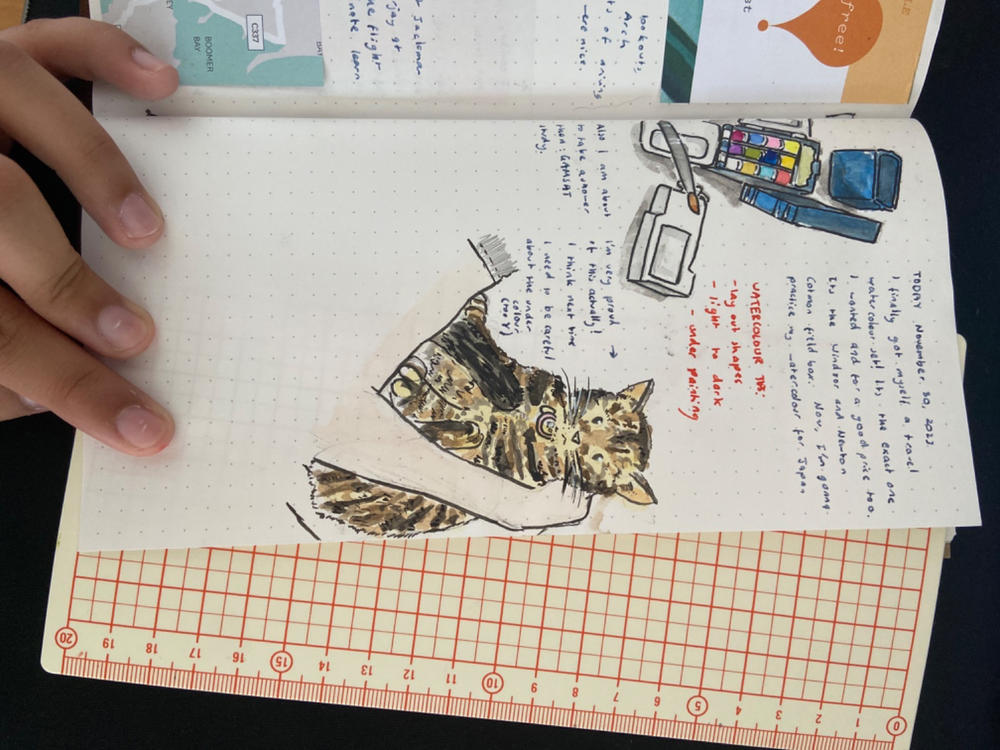 TODAY November, 30, 2023.
I finally got myself a travel
watercolour set! Its the exact one
I wanted and for a good price too.
Its the Windsor and Newton
Cotman field box. Now, I'm gonna
practice my watercolour for Japan
WATERCOLOUR TIPS:
- lay out shapes
- light to dark
- under painting
Also I am about
to take another
study.
I'm very proud →
of this actually!
I think next time
I need to be careful
about the under
colour
lookouts,
Arch
nice.
note. learn.
C337
BOOMER
BAY
free!
20
19
18
17
16
15
14
13
12
11
10
9
8
7
6
5
4
3
2
1
0